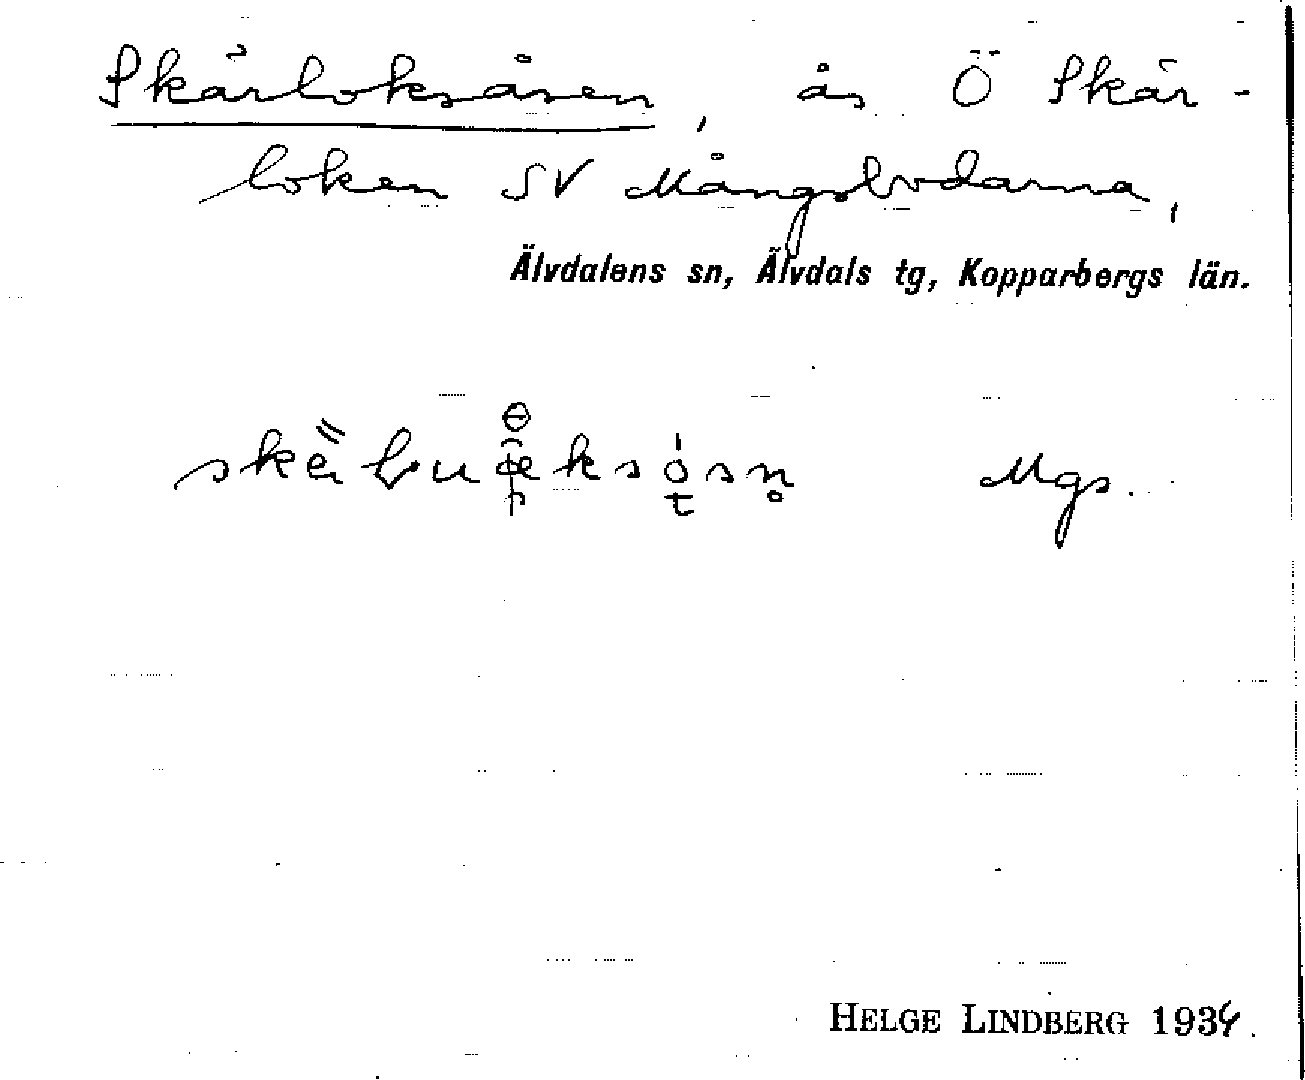 Skärloksåsen, ås Ö Skär-
loken SV Mångsbodarna,
Älvdalens sn, Älvdals tg, Kopparbergs län.
Mgs.
HELGE LINDBERG 1934.